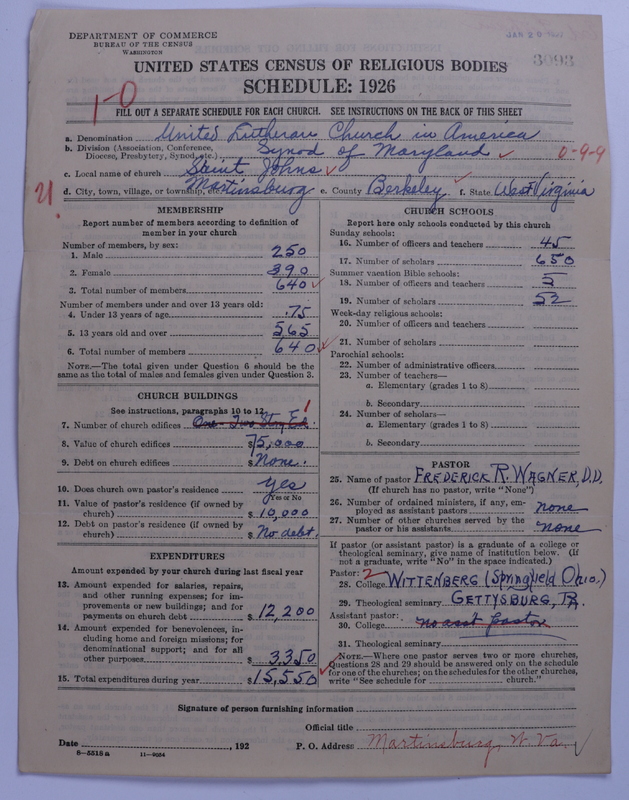 DEPARTMENT OF COMMERCE
BUREAU OF THE CENSUS
WASHINGTON
JAN 20
3093
UNITED STATES CENSUS OF RELIGIOUS BODIES
SCHEDULE: 1926
1-0
FILL OUT A SEPARATE SCHEDULE FOR EACH CHURCH. SEE INSTRUCTIONS ON THE BACK OF THIS SHEET
a. Denomination United Lutheran Church in America
b. Division (Association, Conference, Diocese, Presbytery, Synod, etc.) Synod of Maryland
0-9-9
c. Local name of church Saint Johns
d. City, town, village, or township, etc. Martinsburg e. County Berkeley f. State West Virginia
MEMBERSHIP
Report number of members according to definition of
member in your church
Number of members, by sex:
1. Male 250
2. Female 390
3. Total number of members 640
Number of members under and over 13 years old:
4. Under 13 years of age 75
5. 13 years old and over 565
6. Total number of members 640
NOTE.—The total given under Question 6 should be
same as the total of males and females given under Question 3.
CHURCH BUILDINGS
See instructions, paragraphs 10 to 12
7. Number of church edifices One - Two Story Ed. 1
8. Value of church edifices $75,000
9. Debt on church edifices $None.
10. Does church own pastor's residence yes
Yes or No
11. Value of pastor's residence (if owned by
church) $10,000
12. Debt on pastor's residence (if owned by
church) $No debt.
EXPENDITURES
Amount expended by your church during last fiscal year
13. Amount expended for salaries, repairs,
and other running expenses; for im-
provements or new buildings; and for
payments on church debt $12,200
14. Amount expended for benevolences, in-
cluding home and foreign missions; for
denominational support; and for all
other purposes $3,350
15. Total expenditures during year $15,550
CHURCH SCHOOLS
Report here only schools conducted by this church
Sunday schools:
16. Number of officers and teachers 45
17. Number of scholars 650
Summer vacation Bible schools:
18. Number of officers and teachers 5
19. Number of scholars 52
Week-day religious schools:
20. Number of officers and teachers
21. Number of scholars
Parochial schools:
22. Number of administrative officers
23. Number of teachers—
a. Elementary (grades 1 to 8)
b. Secondary
24. Number of scholars—
a. Elementary (grades 1 to 8)
b. Secondary
PASTOR
25. Name of pastor FREDERICK R. WAGNER, D.D.
(If church has no pastor, write "None")
26. Number of ordained ministers, if any, em-
ployed as assistant pastors none
27. Number of other churches served by the
pastor or his assistants none
If pastor (or assistant pastor) is a graduate of a college or
theological seminary, give name of institution below. (If
not a graduate, write "No" in the space indicated.)
Pastor: 2
28. College WITTENBERG (Springfield Ohio.)
29. Theological seminary GETTYSBURG, PA.
Assistant pastor:
30. College no asst pastor
31. Theological seminary
NOTE.—Where one pastor serves two or more churches,
Questions 28 and 29 should be answered only on the schedule
for one of the churches; on the schedules for the other churches,
write "See schedule for church."
Signature of person furnishing information
Official title
Date , 192
P. O. Address Martinsburg, W. Va.
8-5518a 11-9054